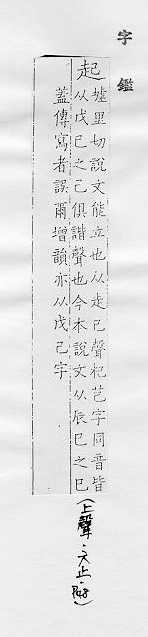 字鑑
起
墟里切說文能立也从走己聲杞芑字同音皆
从戊己之己俱諧聲也今本說文从辰巳之巳
蓋傳寫者誤爾增韻亦从戊己字
(上聲·六止·P48)